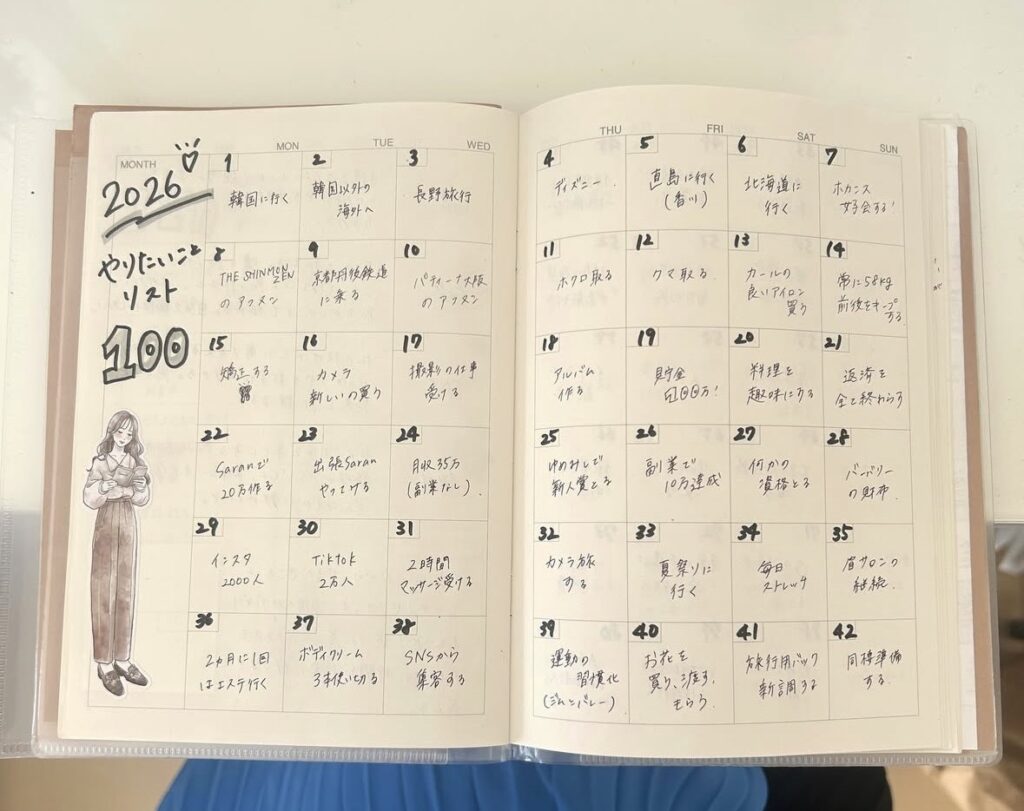 MONTH
MON
TUE
WED
THU
FRI
SAT
SUN
2026
やりたいこと
リスト
100
1
韓国に行く
2
韓国以外の
海外へ
3
長野旅行
4
ディズニー
5
直島に行く
(香川)
6
北海道に
行く
7
ホカンス
女子会する!
8
THE SHINMON
ZEN
のアフヌン
9
京都丹後鉄道
に乗る
10
パティーナ大阪
のアフヌン
11
ホクロ取る
12
クマ取る
13
カールの
良いアイロン
買う
14
常に58kg
前後をキープ
する
15
矯正する
16
カメラ
新しいの買う
17
撮影の仕事
受ける
18
アルバム
作る
19
貯金
100万!
20
料理を
趣味にする
21
返済を
全て終わらす
22
Saranで
20万作る
23
出張Saran
24
月収35万
(副業なし)
25
ゆめみしで
新人賞とる
26
副業で
10万達成
27
何かの
資格とる
28
バーバリー
の財布
29
インスタ
2000人
30
TikTok
2万人
31
2時間
マッサージ受ける
32
カメラ旅
する
33
夏祭りに
行く
34
毎日
ストレッチ
35
眉サロンの
継続
36
2ヵ月に1回
はエステ行く
37
ボディクリーム
3本使い切る
38
SNSから
集客する
39
運動の
習慣化
(ジムとバレー)
40
お花を
買う、渡す、
もらう
41
旅行用バック
新調する
42
同棲準備
する